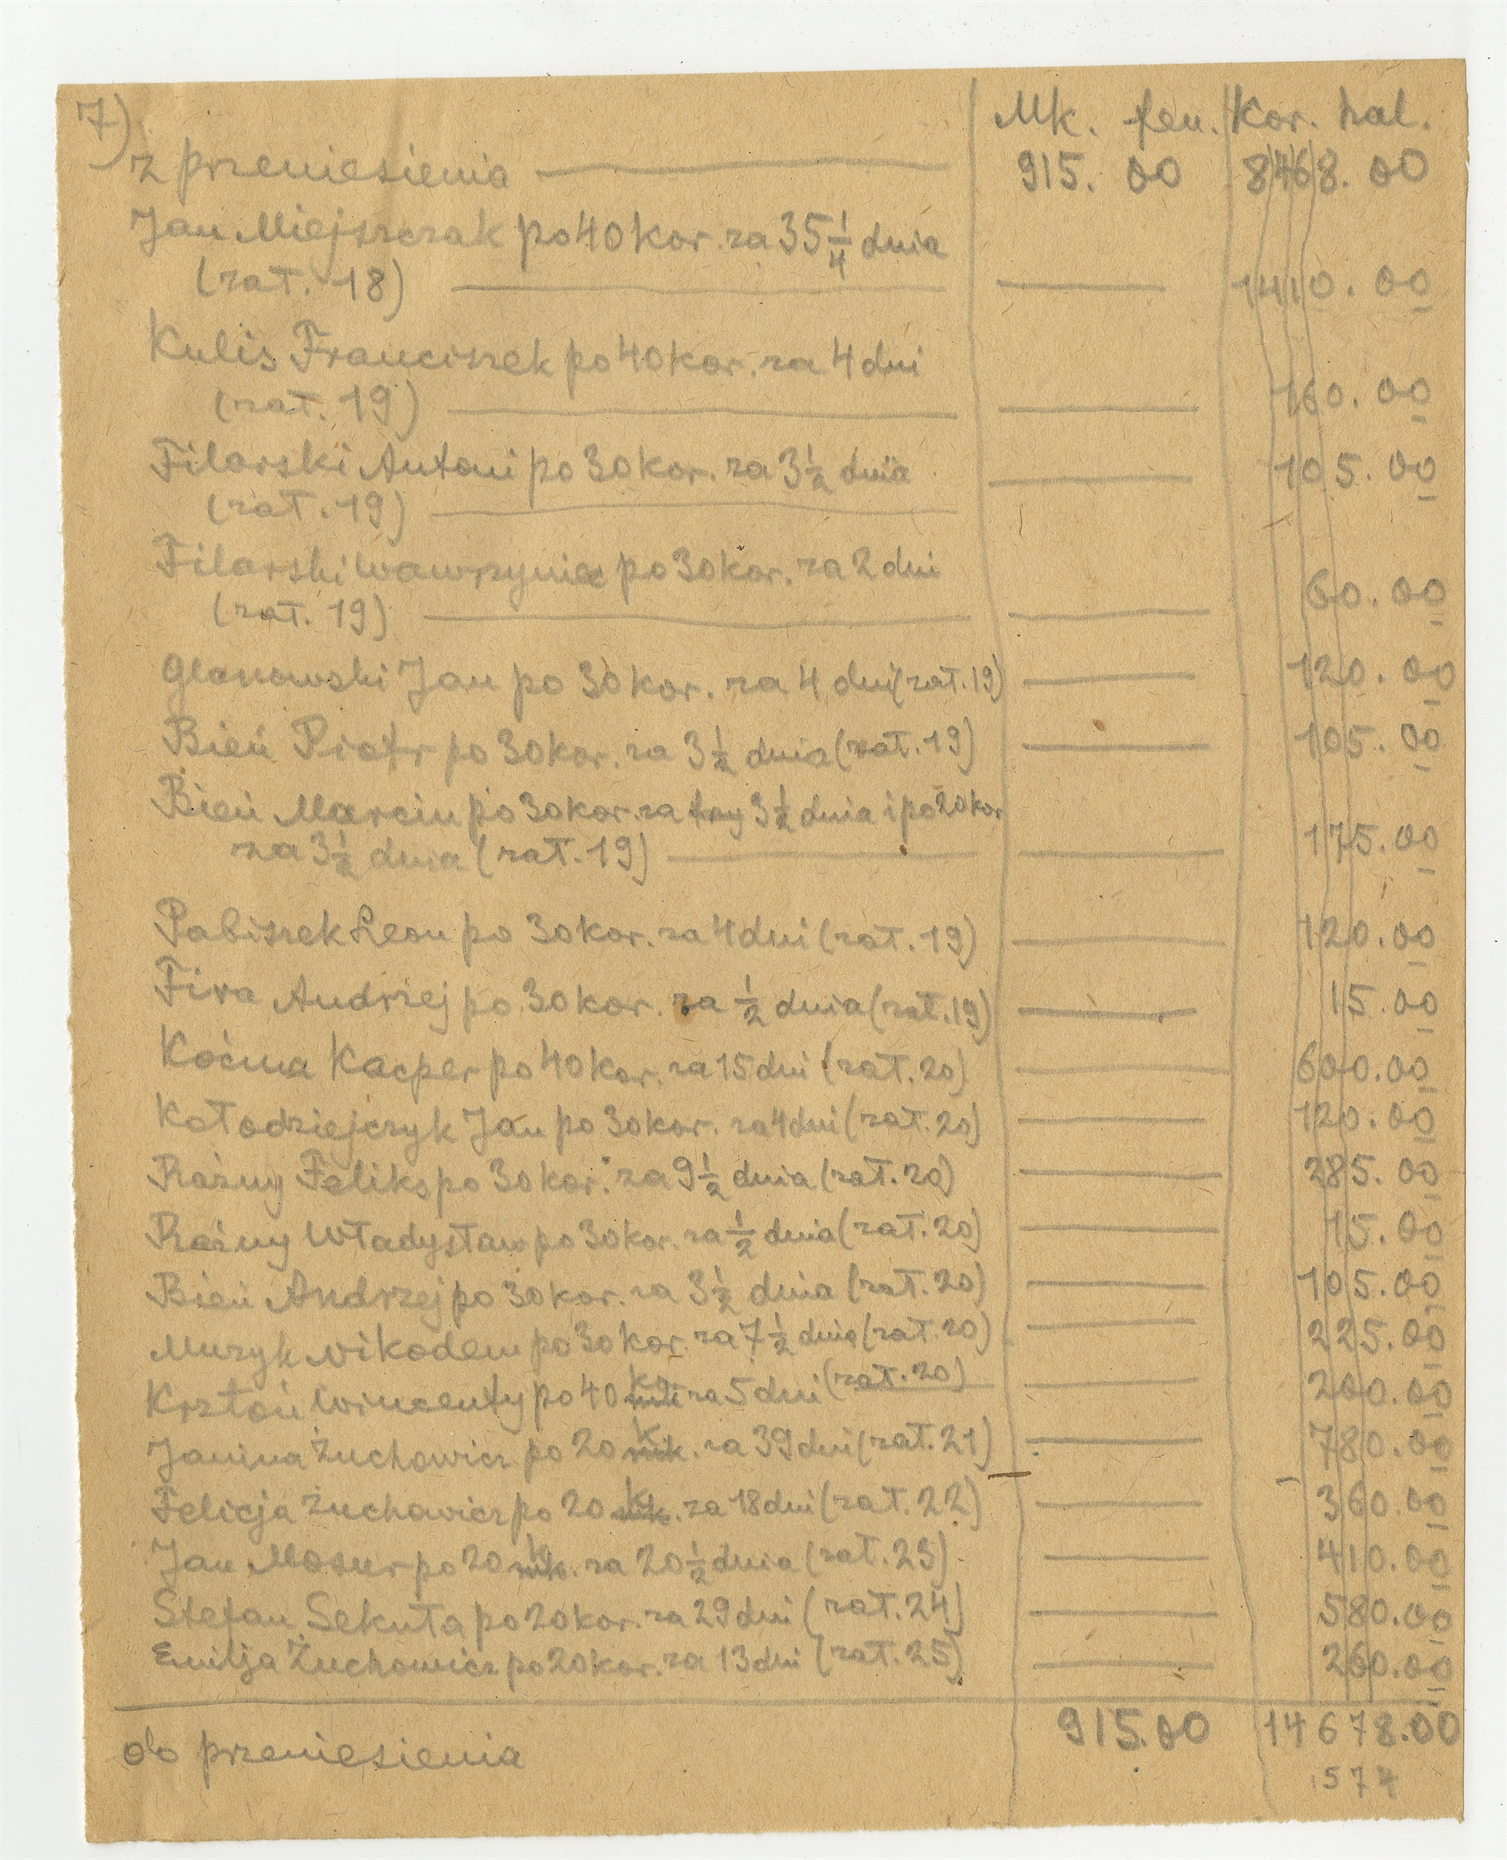 7)
Mk. fen. Kor. hal.
z przeniesienia 915. 00 8468. 00
Jan Miejszczak po 40 kor. za 35 1/4 dnia
(zał. 18) 1410. 00
Kulis Franciszek po 40 kor. za 4 dni
(zał. 19) 160. 00
Filarski Antoni po 30 kor. za 3 1/2 dnia 105. 00
(zał. 19)
Filarski Wawrzyniec po 30 kor. za 2 dni
(zał. 19) 60. 00
Glanowski Jan po 30 kor. za 4 dni (zał. 19) 120. 00
Bień Piotr po 30 kor. za 3 1/2 dnia (zał. 19) 105. 00
Bień Marcin po 30 kor. za trzy 3 1/2 dnia i po 20 kor
za 3 1/2 dnia (zał. 19) 175. 00
Pabiszek Leon po 30 kor. za 4 dni (zał. 19) 120. 00
Fira Andrzej po 30 kor. za 1/2 dnia (zał. 19) 15. 00
Koćma Kacper po 40 kor. za 15 dni (zał. 20) 600. 00
Kołodziejczyk Jan po 30 kor. za 4 dni (zał. 20) 120. 00
Różny Feliks po 30 kor. za 9 1/2 dnia (zał. 20) 285. 00
Różny Władysław po 30 kor. za 1/2 dnia (zał. 20) 15. 00
Bień Andrzej po 30 kor. za 3 1/2 dnia (zał. 20) 105. 00
Muzyk Nikodem po 30 kor. za 7 1/2 dnia (zał. 20) 225. 00
Krztoń Wincenty po 40 k. za 5 dni (zał. 20) 200. 00
Janina Żuchowicz po 20 k. mk. za 39 dni (zał. 21) 780. 00
Felicja Żuchowicz po 20 k. mk. za 18 dni (zał. 22) 360. 00
Jan Mosur po 20 k. mk. za 20 1/2 dnia (zał. 23) 410. 00
Stefan Sekuła po 20 kor. za 29 dni (zał. 24) 580. 00
Emilja Żuchowicz po 20 kor. za 13 dni (zał. 25) 260. 00
do przeniesienia 915. 00 14678. 00
574